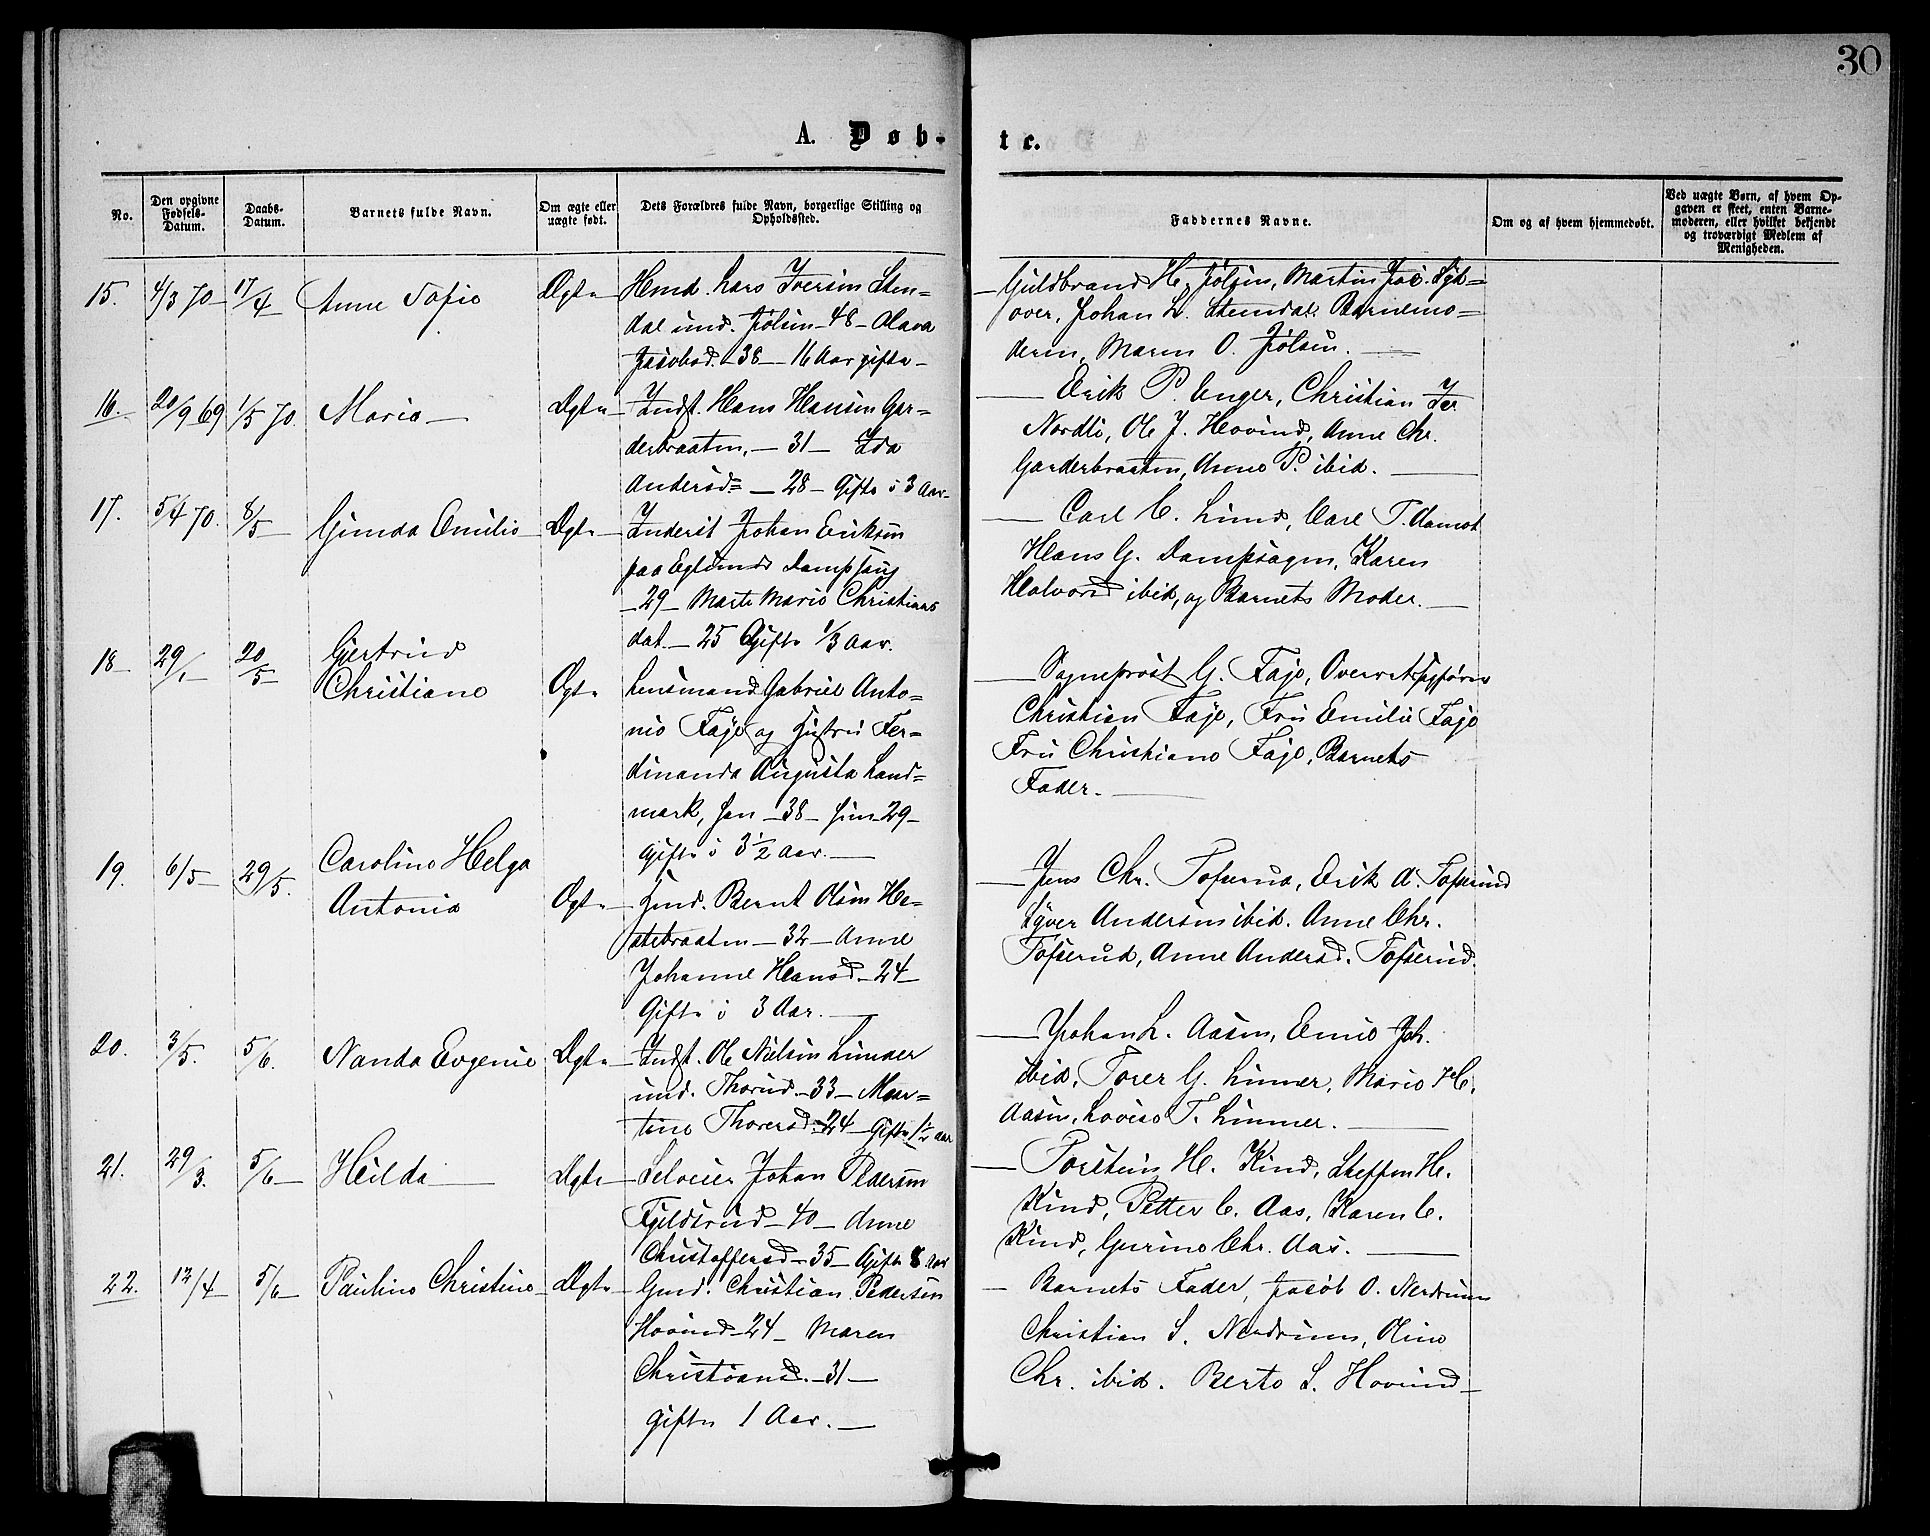 30
A. Døb-
te.
No.
Den opgivne Fødsels-Datum.
Daabs-Datum.
Barnets fulde Navn.
Om ægte eller uægte født.
Dets Forældres fulde Navn, borgerlige Stilling og Opholdssted.
Faddernes Navne.
Om og af hvem hjemmedøbt.
Ved uægte Børn, af hvem Opgaven er skeet, enten Barnemoderen, eller hvilket bekjendt og troværdigt Medlem af Menigheden.
15. 4/3 70 17/4 Anne Sofie Ægte
Lars Iversen Sten=
dal und. Jølsen - 48 - Olava
Jacobsd. - 38 - 16 Aar gifte -
Guldbrand H. Jølsen, Martin Jac.
over, Johan L. Stendal Barnemo=
deren, Maren O. Jølsen.
16. 20/9 69 1/5 70. Maria Ægte
Indst. Hans Hansen Gar=
derbraaten, - 31 - Ida
Andersd= - 28 - Gifte i 3 Aar -
Erik P. Enger, Christian
Nordli, Ole J. Hovind, Anne Chr.
Garderbraaten, Anne P. ibid.
17. 5/4 70. 8/5 Gunda Emilie Ægte
Inderst Johan Eriksen
paa Eglunds Dampsaug
- 29 - Marte Marie Christians
dat. - 25 Gifte 1/3 Aar.
Carl C. Lund, Carl T. Aamot
Hans G. Dampsagen, Karen
Halvorsd ibid, og Barnets Moder.
18 29/1 20/5 Gjertrud
Christiane Ægte
Lensmand Gabriel Anto=
nio Faje og Hustru Fer=
dinanda Augusta Land=
mark, han - 38 - hun - 29 -
Gifte i 3 1/2 Aar.
Sogneprost G. Faje,
Christian Faje, Fru Emilie Faje
Fru Christiane Faje, Barnets
Fader.
19. 6/5 29/5. Caroline Helga
Antonia Ægte
Gmd. Bernt Olsen He=
stebraaten - 32 - Anne
Johanne Hansd - 24 -
Gifte i 3 Aar.
Jens Chr. Tofserud, Erik A. Tofserud
Syver Andersen ibid. Anne Chr.
Tofserud, Anne Andersd. Tofserud.
20. 3/5. 5/6. Nanda Evgenie Ægte
Indst. Ole Nielsen
und. Thorud - 33 - Mar=
tine Thoresd - 24 - Gifte 1 1/2 aar
Johan L. Aasen, Joh.
ibid, Torer G. Linner, Marie H.
Aasen, Lovise T. Linner.
21. 29/3. 5/6 Hilda Ægte
Selveier Johan Pedersen
Fjeldsrud - 40 - Anne
Christoffersd - 35 - Gifte 8 Aar
Torstein H. Kind, Steffen H.
Kind, Petter C. Aas, Karen C.
Kind, Gurine Chr. Aas.
22. 12/4 5/6 Pauline Christine Ægte
Gmd. Christian Pedersen
Hovind - 24 - Maren
- 31 -
gifte 1 Aar.
Barnets Fader, Jacob O. Nerdrum
Christian S. Nerdrum, Oline
Chr. ibid. Berte S. Hovind